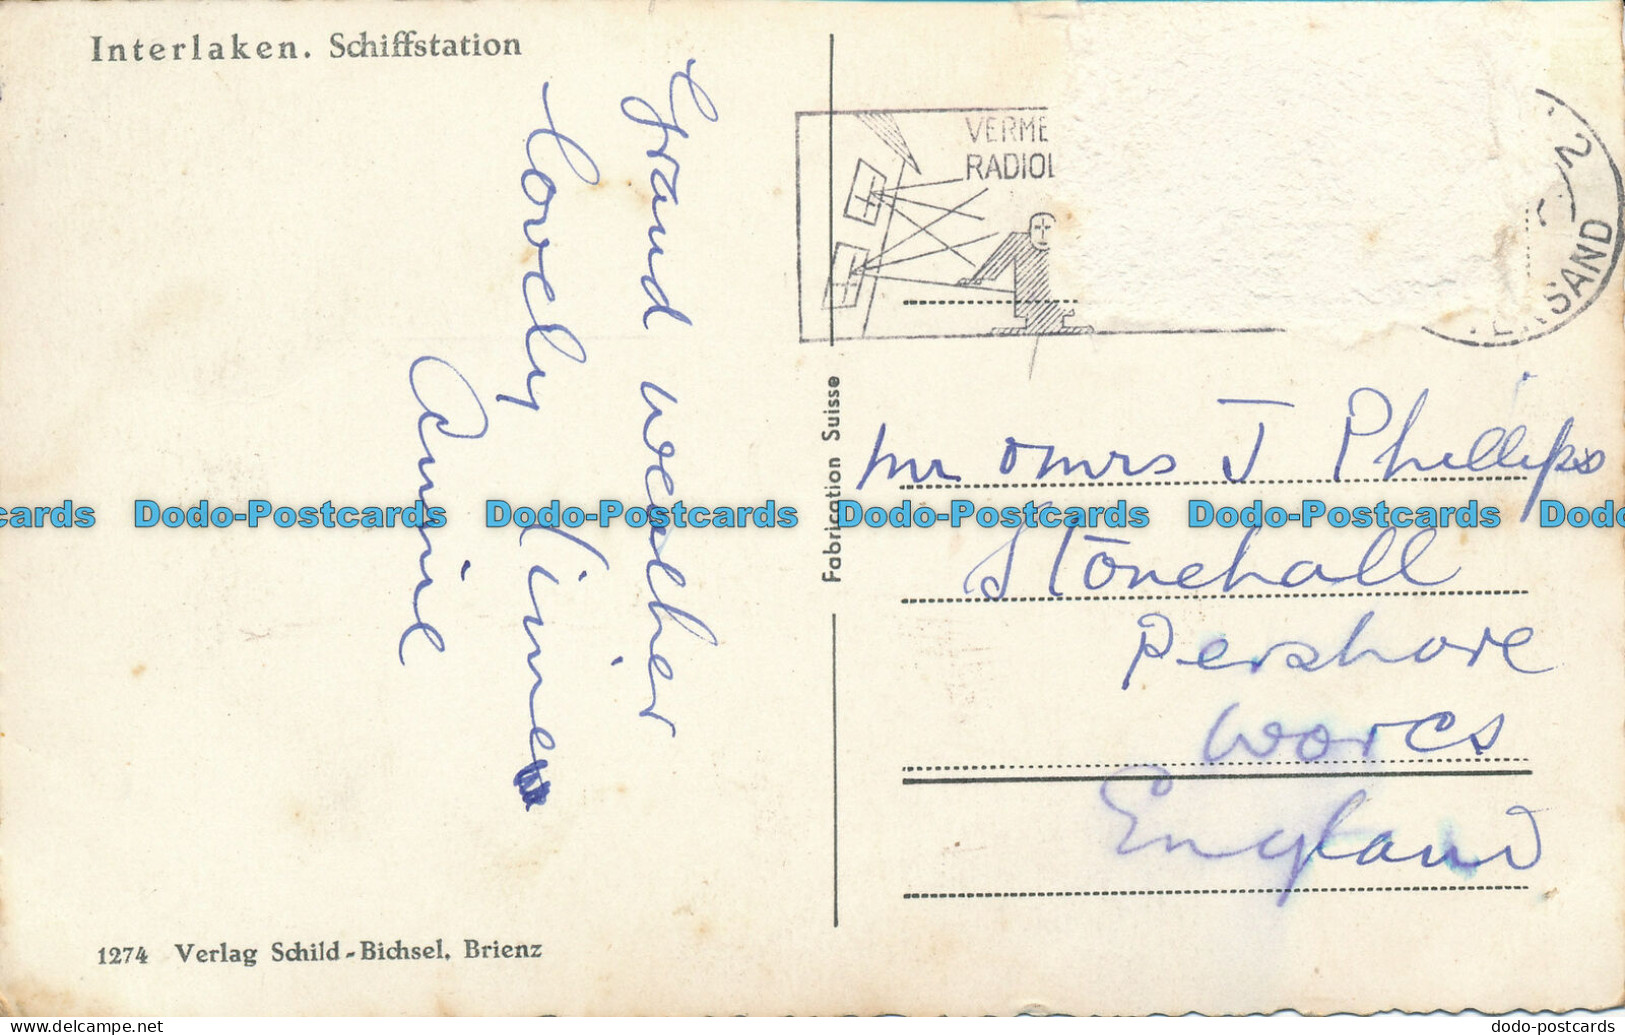 Interlaken. Schiffstation
Grand weather
lovely time
Annie
1274 Verlag Schild-Bichsel, Brienz
Fabrication Suisse
VERME
RADIOL
2
ERSAND
Mr & Mrs J Phillips
Stonehall
Pershore
Worcs
England
Dodo-Postcards Dodo-Postcards Dodo-Postcards Dodo-Postcards
dodo-postcards.delcampe.net
dodo-postcards